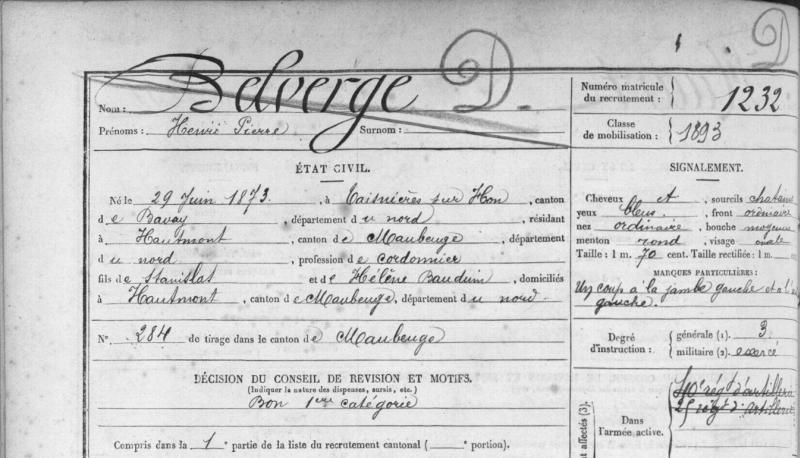 D
Nom : Belverge D.
Prénoms : Henri Pierre Surnom :
Numéro matricule du recrutement : 1232
Classe de mobilisation : 1893
ÉTAT CIVIL.
Né le 29 Juin 1873. , à Taisnières sur Hon , canton
de Bavay , département du nord , résidant
à Hautmont , canton de Maubeuge , département
du nord , profession de cordonnier
fils de Stanislas et de Hélène Bauduin , domiciliés
à Hautmont , canton de Maubeuge, département du nord.
N° 284 de tirage dans le canton de Maubeuge
DÉCISION DU CONSEIL DE REVISION ET MOTIFS.
(Indiquer la nature des dispenses, sursis, etc.)
Bon 1ere catégorie
Compris dans la 1e partie de la liste du recrutement cantonal ( e portion).
SIGNALEMENT.
Cheveux et , sourcils chatains
yeux bleus , front ordinaire
nez ordinaire , bouche moyenne
menton rond , visage ovale
Taille : 1 m. 70 cent. Taille rectifiée : 1 m.
MARQUES PARTICULIÈRES :
Un coup à la jambe gauche et à
gauche.
Degré d'instruction : générale (1). 3
militaire (2). exercé
affectés (3).
Dans l'armée active.
40e régt d'artillerie
25 régt d'artillerie